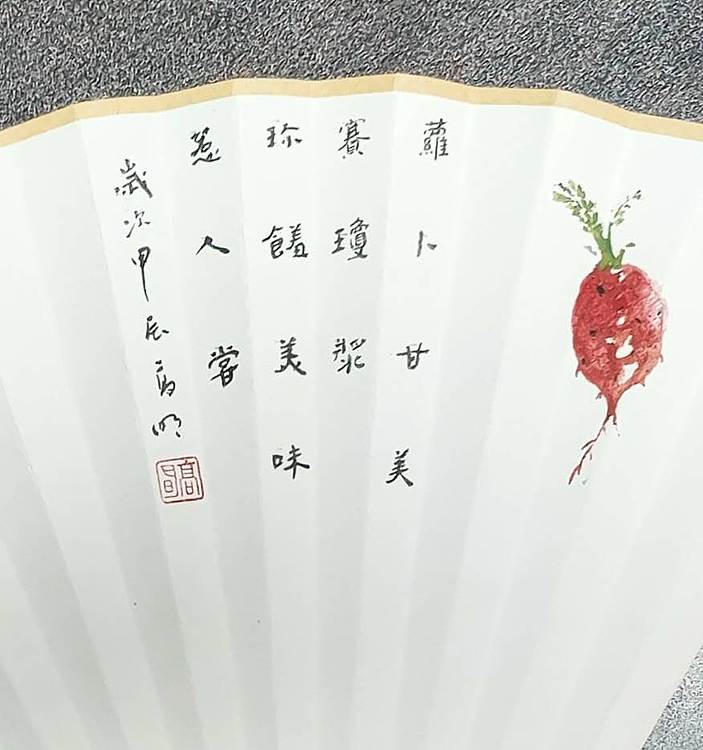 蘿卜甘美
賽瓊漿
珎饈美味
惹人嘗
歲次甲辰高明